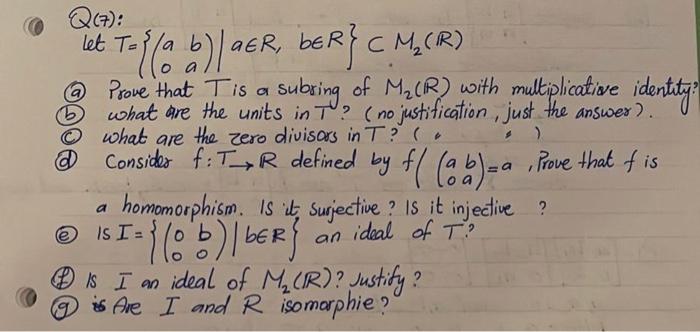 Q(7):
let T={(a b
0 a)| a∈R, b∈R} ⊂ M₂(R)
(a) Prove that T is a subring of M₂(R) with multiplicative identity?
(b) what are the units in T? (no justification, just the answer).
(c) what are the zero divisors in T? ( " " )
(d) Consider f: T→R defined by f( (a b
0 a)=a , Prove that f is
a homomorphism. Is it surjective? Is it injective ?
(e) IS I={(0 b
0 0)| b∈R} an ideal of T?
(f) IS I an ideal of M₂(R)? Justify?
(g) Are I and R isomorphic?